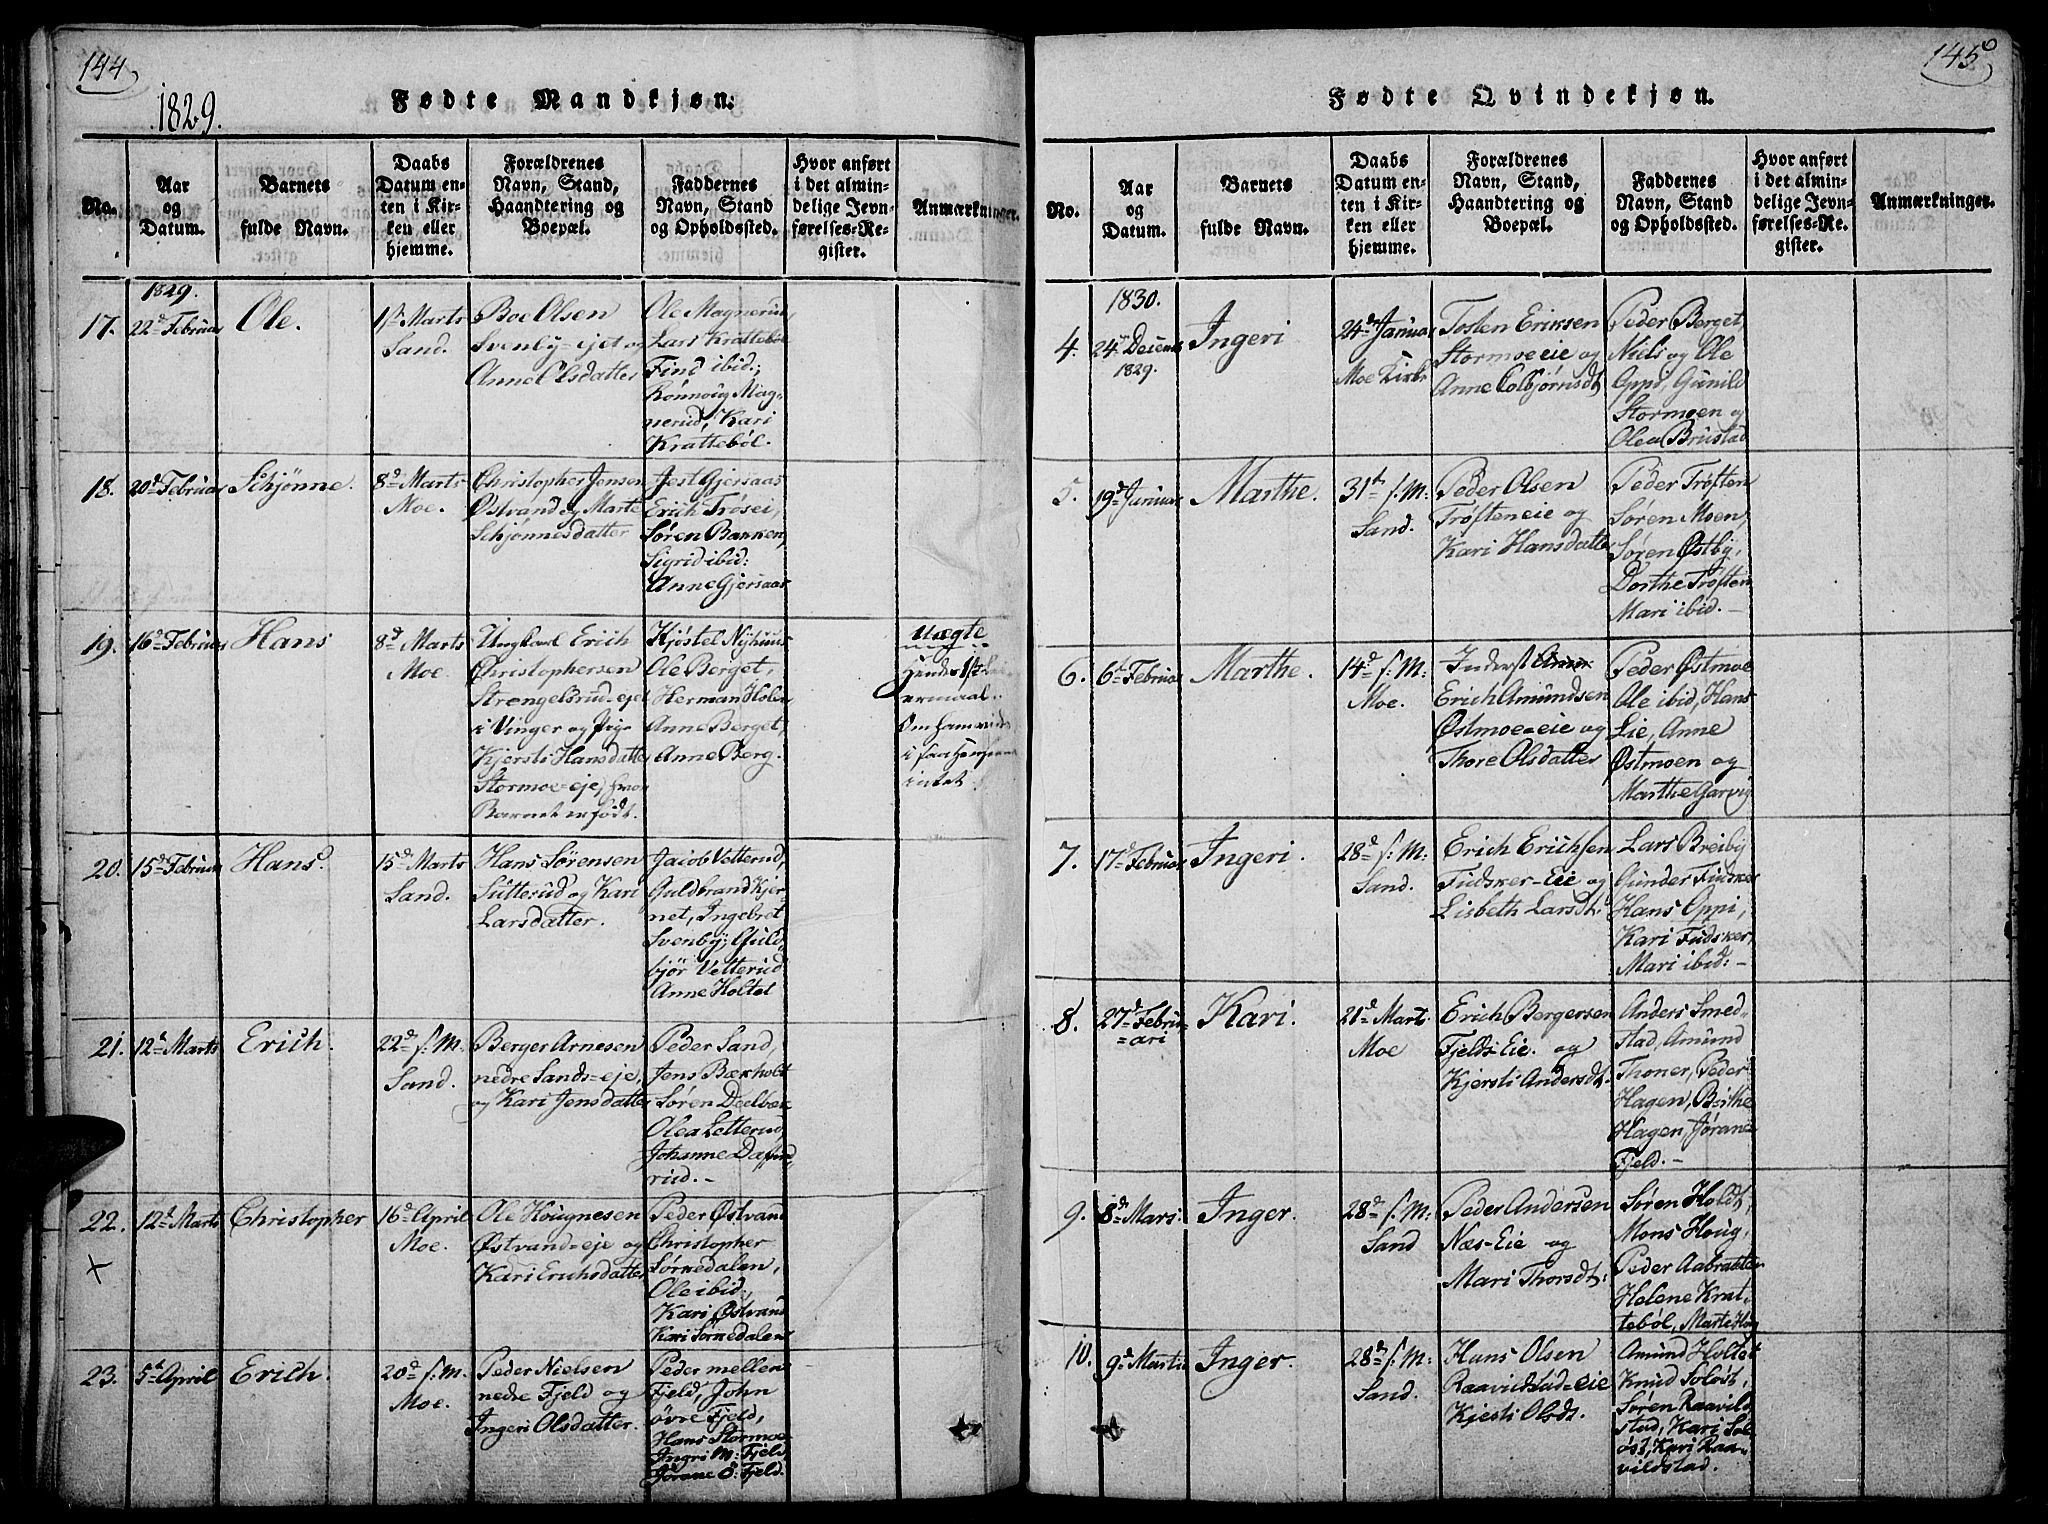 144
1829.
Fødte Mandkjøn.
No.
Aar
og
Datum.
Barnets
fulde Navn.
Daabs
Datum en-
ten i Kir-
ken eller
hjemme.
Forældrenes
Navn, Stand,
Haandtering og
Boepæl.
Faddernes
Navn, Stand
og Opholdssted.
Hvor anført
i det almin-
delige Jevn-
førelses-Re-
gister.
Anmærkninger.
17.
1829.
22d Februar
Ole.
1st Marts
Sand.
Boe Olsen
Svenby-ejet og
Anne Olsdatter
Ole Magnerud,
Lars Kratteböl
Find ibid.;
Rönnoug Mag-
nerud, Kari
Kratteböl.
18.
20d Februar
Schjønne.
8d Marts
Moe.
Christopher Jensen
Østvand og Marte
Schjønnesdatter
Jost Gjersaas
Erich Trösei,
Sören Bakken,
Sigrid ibid:
Anne Gjersaas
19.
16d Februar
Hans
8d Marts
Moe.
Ungkarl Erich
Christophersen
Strengelsrud-ejet
i Vinger og Pige
Kjersti Hansdatter
Stormoe-eje, hvor
Barnet er födt.
Kjöstel Nyhuus
Ole Berget,
Herman Holen
Anne Berget,
Anne Berg.
Uægte
20.
15d Februar
Hans.
15d Marts
Sand.
Hans Sörensen
Sutterud og Kari
Larsdatter.
Jacob Vetterud,
Guldbrand Kjer-
net, Ingebret
Svenby; Guld-
björ Vetterud
Anne Holtet
21.
12d Marts
Erich.
22d s. M.
Sand.
Berger Arnesen
nedre Sands-eje,
og Kari Jensdatter
Peder Sand,
Jens Bækholt
Sören Deelbæk
Olea Letterud,
Johanne Dafin-
rud.-
22.
12d Marts
Christopher
16d April
Moe.
Ole Hougnesen
Østvand-eje og
Kari Erichsdatter
Peder Østvand
Christopher
Sörnedalen,
Ole ibid.,
Kari Østvand
Kari Sörnedalen
23.
5t April
Erich.
20d s. M.
Moe.
Peder Nielsen
nedre Fjeld og
Ingeri Olsdatter.
Peder mellem
Fjeld, John
övre Fjeld,
Hans Stormoe
Ingri M: Fjeld
Jörane Ö: Fjeld.
145
Fødte Qvindekjøn.
No.
Aar
og
Datum.
Barnets
fulde Navn.
Daabs
Datum en-
ten i Kir-
ken eller
hjemme.
Forældrenes
Navn, Stand,
Haandtering og
Boepæl.
Faddernes
Navn, Stand
og Opholdssted.
Hvor anført
i det almin-
delige Jevn-
førelses-Re-
gister.
Anmærkninger.
4.
1830.
24d Decemb
1829.
Ingeri
24de Januar
Moe Kirke
Tosten Eriksen
Stormoe eie og
Anne Colbjörnsdt
Peder Berget,
Niels og Ole
Oppi, Gunild
Stormoen og
Olea Brustad
5.
19d Januar
Marthe.
31t s. M:
Sand.
Peder Olsen
Tröften eie og
Kari Hansdatter
Peder Tröften
Sören Moen,
Sören Østby,
Dorthe Tröften
Mari ibid.-
6.
6t Februar
Marthe.
14d s. M:
Moe.
Inderst
Erich Amundsen
Østmoe-eie og
Thore Olsdatter
Peder Østmoe
Ole ibid, Hans
Lie, Anne
Østmoen og
Marthe Garvig
7.
17d Februar
Ingeri.
28d s. M:
Sand.
Erich Erichsen
Fudsker-Eie og
Lisbeth Larsdt.
Lars Breiby
Gunder Fudsker
Hans Oppi,
Kari Fudsker,
Mari ibid:-
8.
27d Febru-
=ari
Kari.
21d Mart.
Moe
Erich Bergersen
Fjelds-Eie. og
Kjersti Andersdt.
Anders Smed-
stad, Amund
Thoner, Peder
Hagen, Berthe
Hagen, Jörane
Fjeld.-
9.
8d Mars:
Inger.
28d s. M:
Sand
Peder Andersen
Næs-Eie og
Mari Thorsdt:
Sören Holdt,
Mons Houg,
Peder Aabratten
Helene Krat-
teböl, Marte Houg
10.
9d Martii
Inger.
28d s. M:
Sand.
Hans Olsen
Raavildstad-eie
Kjesti Olsdt.
Amund Holtet
Knud Soløst,
Sören Raavild
stad, Kari Sol
öst, Kari Raa-
vildstad.